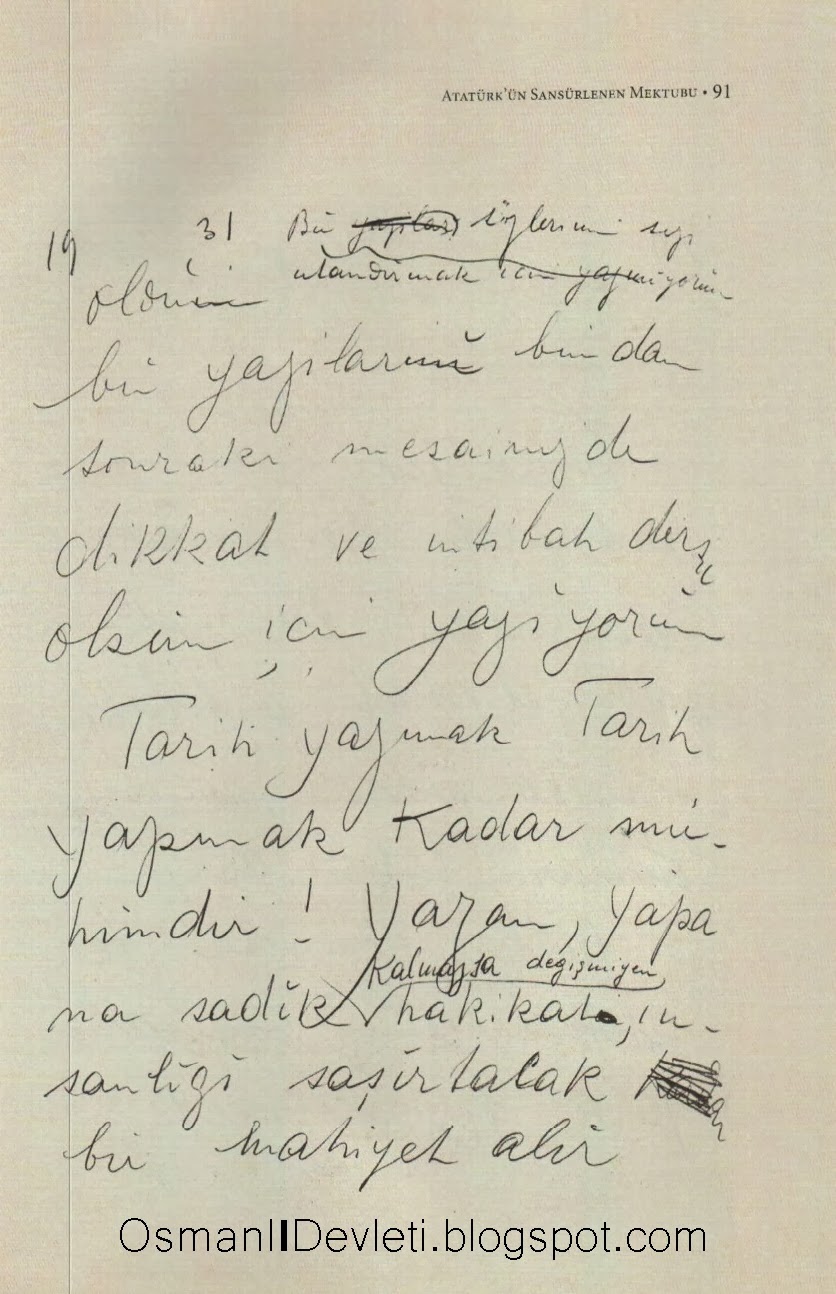 ATATÜRK'ÜN SANSÜRLENEN MEKTUBU • 91
19 31 Bu sözlerimi sizi
utandırmak için yazmıyorum
bu yazılarım bundan
sonraki mesainizde
dikkat ve intibah dersi
olsun için yazıyorum
Tarih yazmak Tarih
yapmak Kadar mü-
himdir! Yazan, yapa
Kalmazsa değişmiyen
na sadık hakikat, in-
sanlığı şaşırtacak
bir mahiyet alır
OsmanlıDevleti.blogspot.com